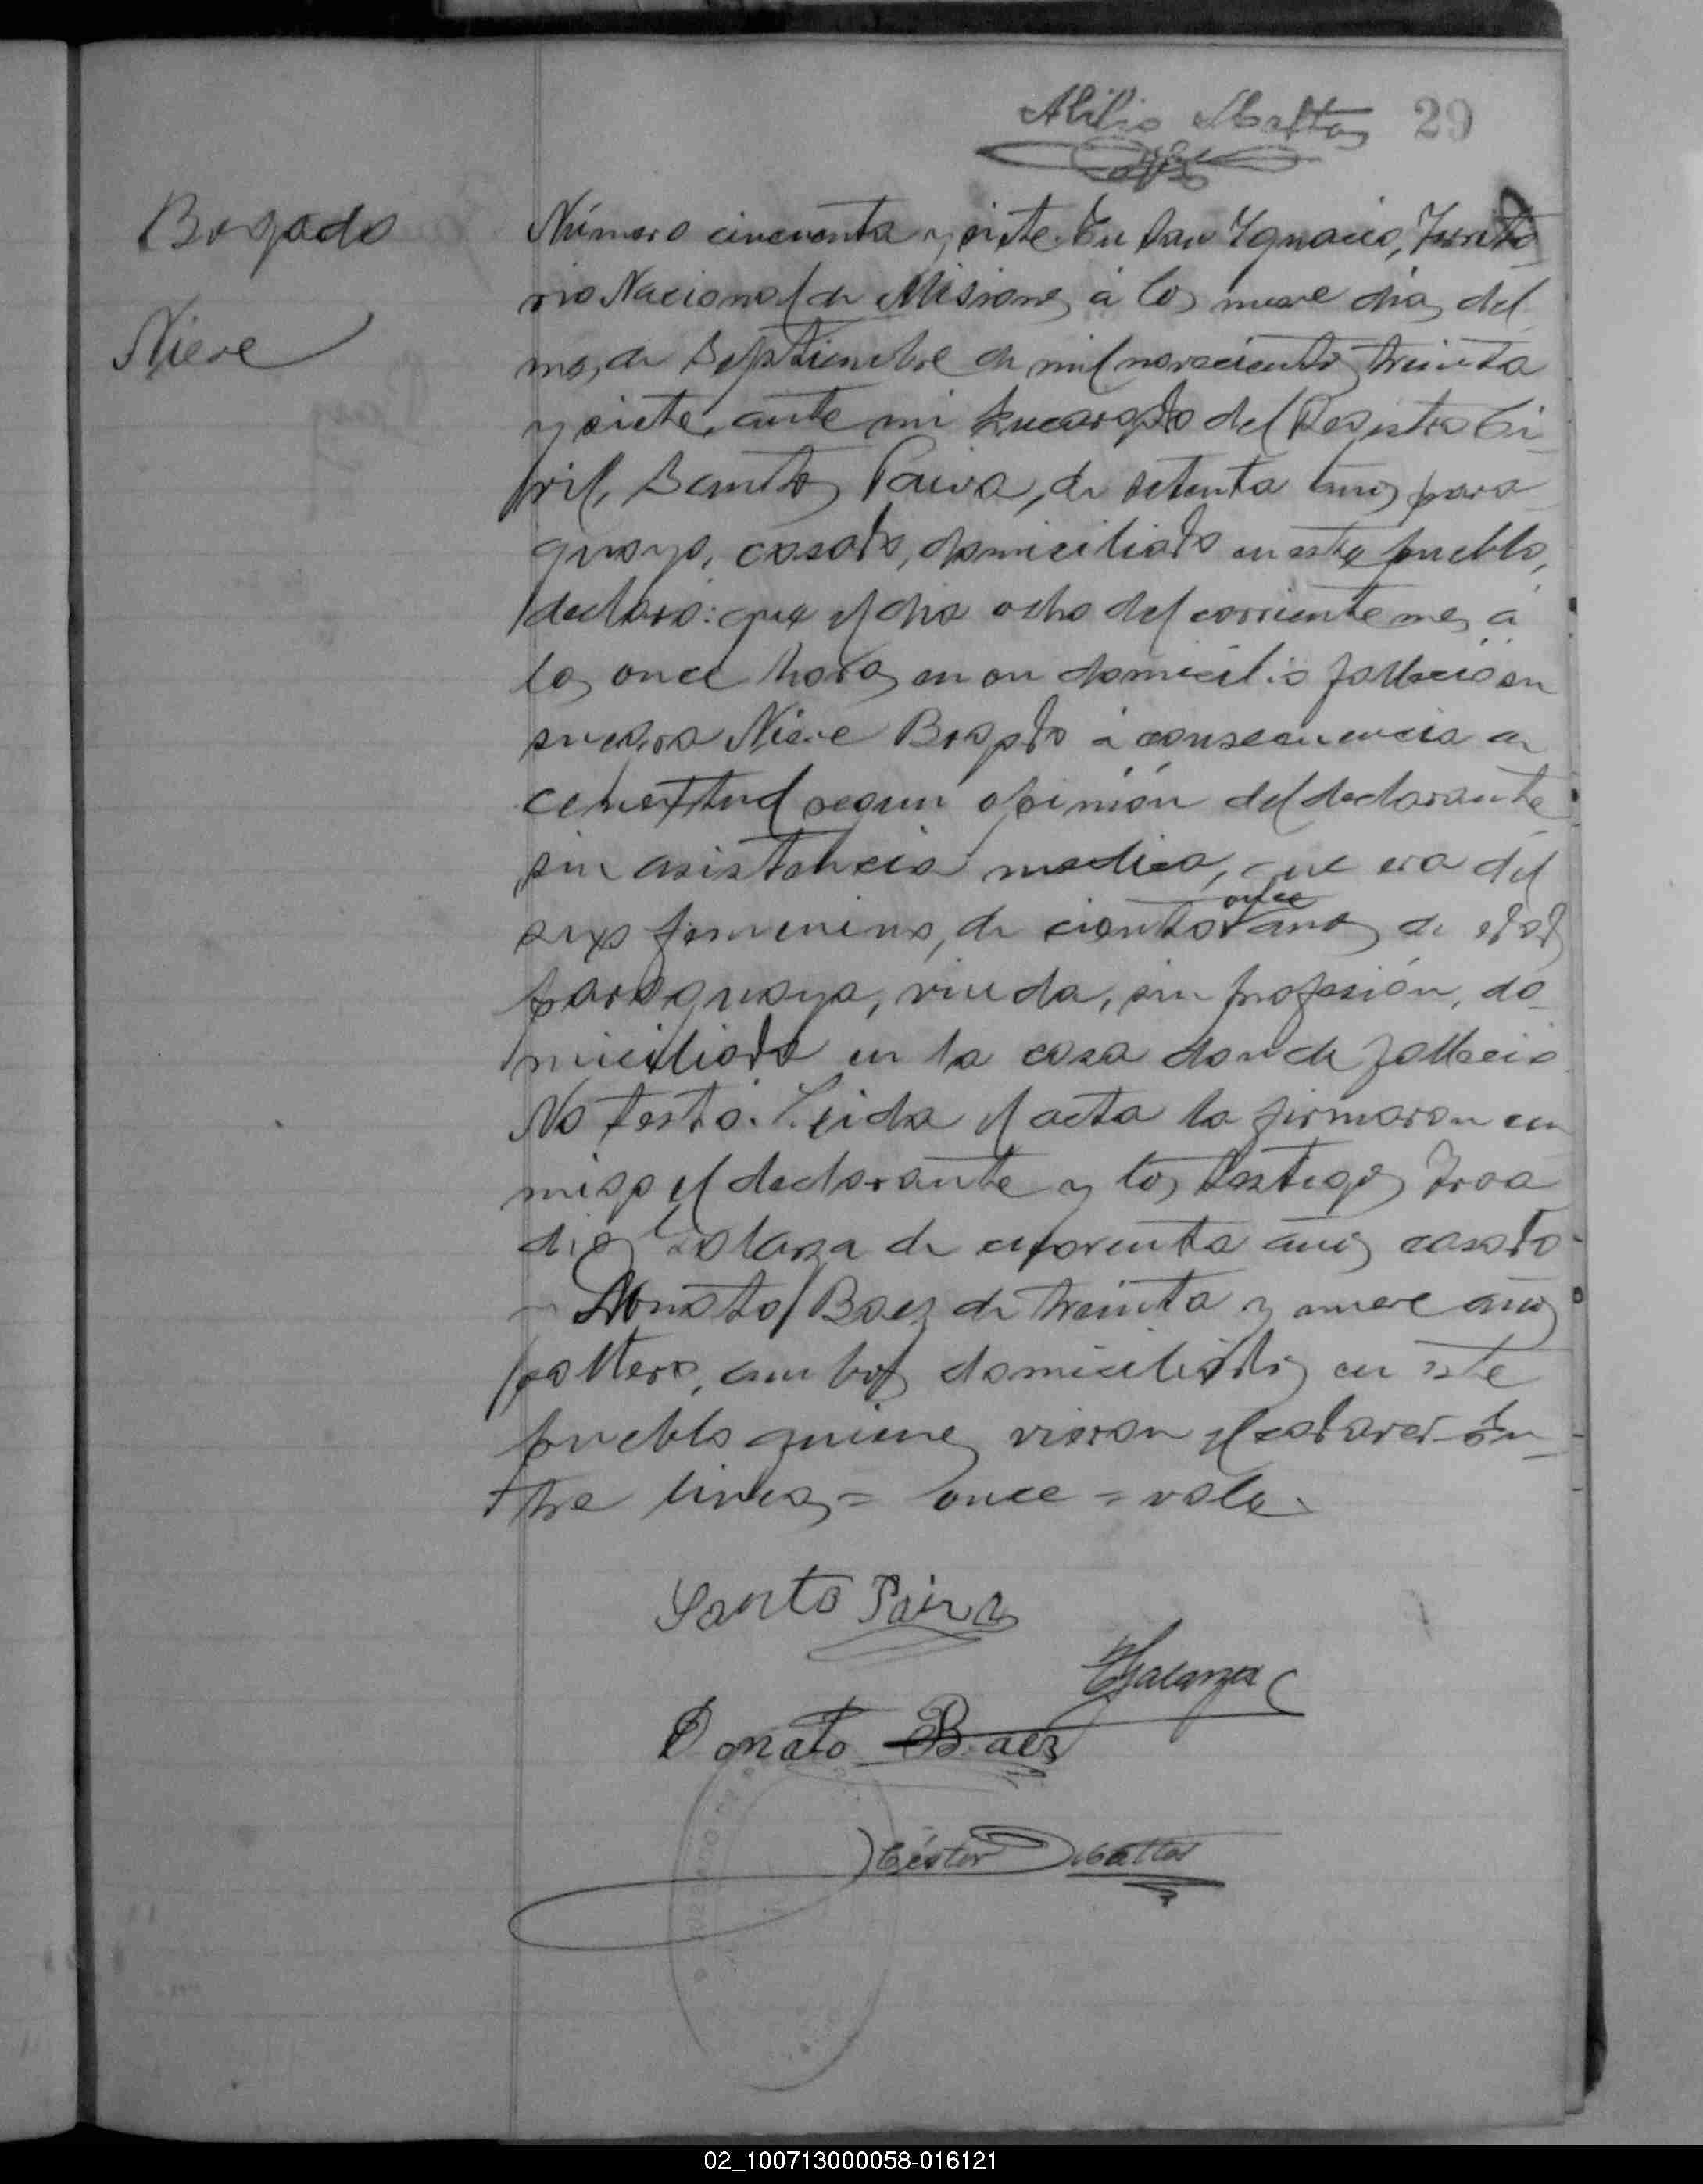 29
Bogado
Nieve
Número cincuenta y siete. En San Ignacio, Territo
rio Nacional de Misiones, á los nueve dias del
mes de Septiembre de mil novecientos treinta
y siete, ante mi Encargado del Registro Ci-
vil, Santos Paiva, de setenta años, para-
guayo, casado, domiciliado en este pueblo,
declaró: que el dia ocho del corriente mes á
las once horas en su domicilio falleció su
suegra Nieve Bogado á consecuencia de
cenectud segun opinión del declarante
sin asistencia medica, que era del
sexo femenino, de ciento once años de edad
paraguaya, viuda, sin profesión, do-
miciliada en la casa donde falleció.
No testó. Leida el acta la firmaron con-
migo el declarante y los testigos
de cuarenta años casado
y Donato Baez de treinta y nueve años
soltero, ambos domiciliados en este
pueblo quienes vieron el cadaver-En-
tre lineas = once = vale.
Santo Paiva
Donato Baez
Héctor
02_100713000058-016121